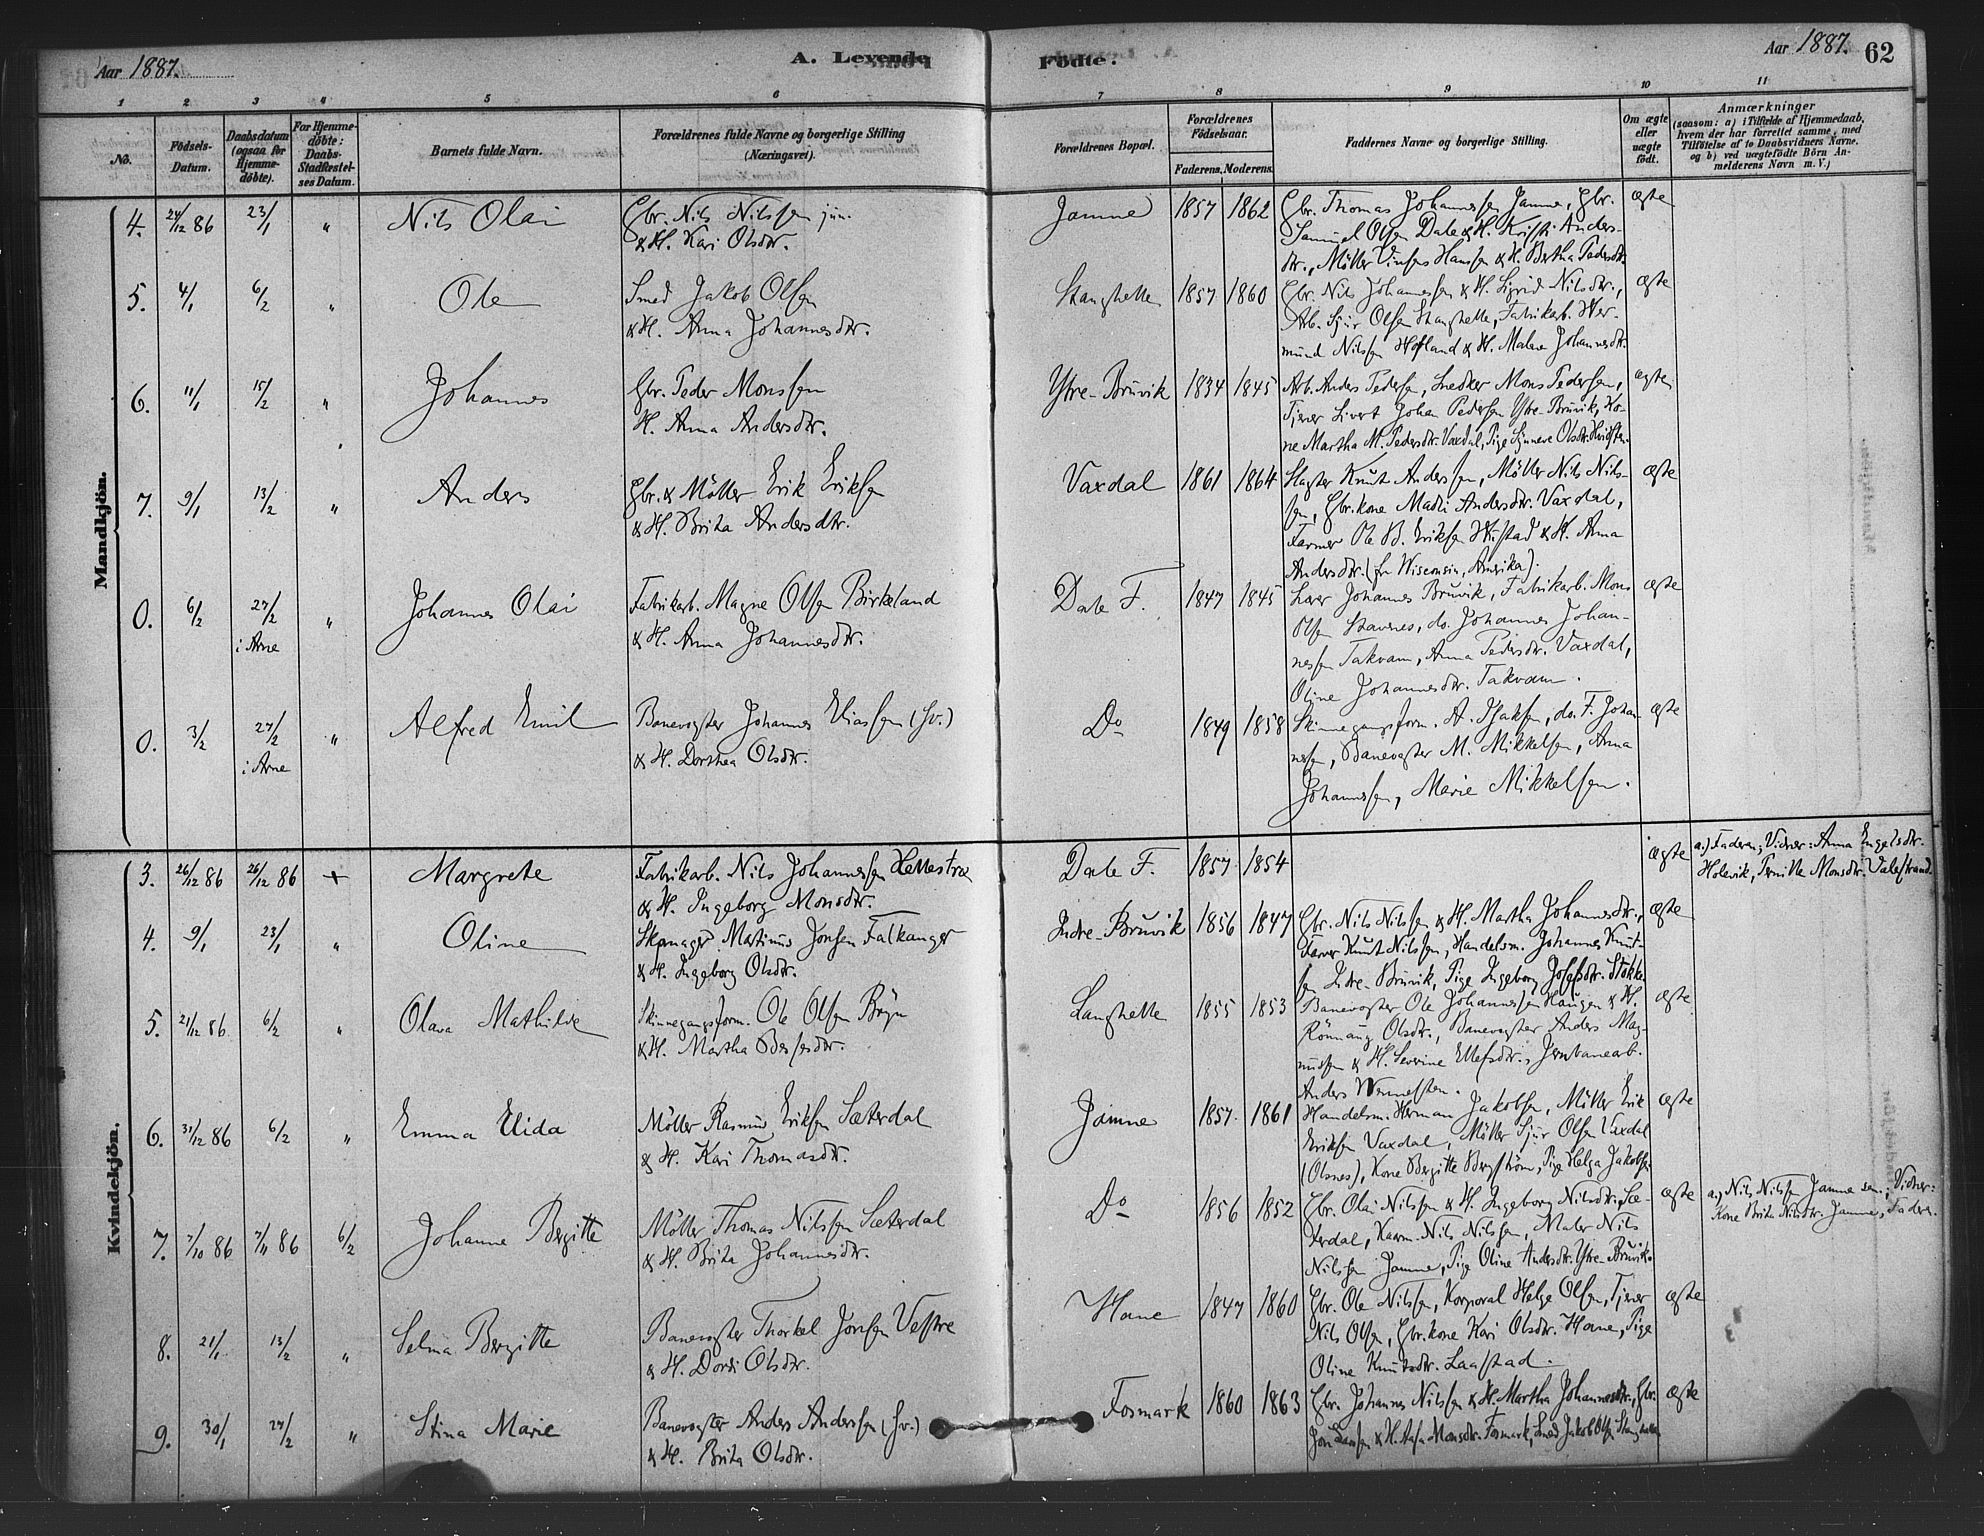 Aar 1887.
A. Levende
Födte.
Aar 1887.
62
1 2 3 4 5 6 7 8 9 10 11
No.
Födsels-
Datum.
Daabsdatum
(ogsaa for
Hjemme-
döbte).
For Hjemme-
döbte:
Daabs-
Stadfæstel-
ses Datum.
Barnets fulde Navn.
Forældrenes fulde Navne og borgerlige Stilling
(Næringsvei).
Forældrenes Bopæl.
Forældrenes
Födselsaar.
Faderens. Moderens.
Faddernes Navne og borgerlige Stilling.
Om ægte
eller
uægte
födt.
Anmærkninger
(saasom: a) i Tilfælde af Hjemmedaab,
hvem der har forrettet samme, med
Tilföielse af to Daabsvidners Navne.
og b) ved uægtefödte Börn An-
melderens Navn m. V.)
Mandkjön.
4. 24/12 86 23/1 " Nils Olai
Gbr. Nils Nilssen jun.
& H. Kari Olsdtr.
Jamne 1857 1862
Gbr. Thomas Johannessen Jamne, Gbr.
Samuel Olsen Dale & H. Kristi Anders-
dtr., Möller Hansen & H. Bertha Pedersdtr.
ægte
5. 4/1 6/2 " Ole
Smed Jakob Olsen
& H. Anna Johannesdtr.
Stanghelle 1857 1860
Gbr. Nils Johannessen & H. Sigrid Nilsdtr.,
Arb. Sjur Olsen Stanghelle, Fabrikarb. Wer-
mund Nilssen Hofland & H. Malene Johannesdtr.
ægte
6. 11/1 15/2 " Johannes
Gbr. Peder Monssen
H. Anna Andersdtr.
Ytre-Bruvik 1834 1845
Arb. Anders Pedersen, Snedker Mons Pedersen,
Tjener Sivert Johan Pedersen Ytre-Bruvik, Ko-
ne Martha M. Pedersdtr. Vaxdal, Pige Synneve Olsdtr.
ægte
7. 9/1 13/2 " Anders
Gbr. & Möller Erik Eriksen
& H. Brita Andersdtr.
Vaxdal 1861 1864
Slagter Knut Anderssen, Möller Nils Nils-
sen, Gbr.kone Madli Andersdtr. Vaxdal,
Farmer Ole B. Eriksen & H. Anna
Andersdtr. (fr. Wisconsin, Amerika).
ægte
0. 6/2 27/2 " Johannes Olai
i Arne
Fabrikarb. Magne Olsen Birkeland
& H. Anna Johannesdtr.
Dale F. 1847 1845
Lærer Johannes Bruvik, Fabrikarb. Mons
Olsen Stavenes, do. Johannes Johan-
nessen Takvam, Anna Pedersdtr. Vaxdal,
Oline Johannesdtr. Takvam.
ægte
0. 3/2 27/2 " Alfred Emil
i Arne
Banevogter Johannes Eliassen (Sv.)
& H. Dorthea Olsdtr.
Do 1849 1858
Skinnegangsform. A. Isaksen, do. F. Johan-
nesen, Banevogter M. Mikkelsen, Anna
Johannessen, Marie Mikkelsen.
ægte
Kvindekjön.
3. 26/12 86 26/12 86 + Margrete
Fabrikarb. Nils Johannessen Hellestræ
& H. Ingeborg Monsdtr.
Dale F. 1857 1854
ægte
a.) Faderen; Vidner: Anna Engelsdtr.
Holevik, Pernille Monsdtr. Dalestrand.
4. 9/1 23/1 " Oline
Skomager Martinus Jonsen Falkanger
& H. Ingeborg Olsdtr.
Indre-Bruvik 1856 1847
Gbr. Nils Nilssen & H. Martha Johannesdtr.,
Farver Knut Nilssen, Handelsm. Johannes Knut-
sen Indre-Bruvik, Pige Ingeborg Josefsdtr. Stokke
ægte
5. 21/12 86 6/2 " Olava Mathilde
Skinnegangsform. Ole Olsen
& H. Martha
Langhelle 1855 1853
Banevogter Ole Johannessen Haugen & H.
Rönnaug Olsdtr., Banevogter Anders Mag-
nussen & H. Severine Ellefsdtr., Jernbanearb.
Anders
ægte
6. 31/12 86 6/2 " Emma Elida
Möller Rasmus Eriksen Sæterdal
& H. Kari Thomasdtr.
Jamne 1857 1861
Handelsm. Herman Jakobsen, Möller Erik
Eriksen Vaxdal, Möller Sjur Olsen Vaxdal
(Olsnes), Kone Bergitte Bergström, Pige Helga Jakobsen
ægte
7. 7/10 86 7/11 86 6/2 Johanna Bergitte
Möller Thomas Nilssen Sæterdal
& H. Brita Johannesdtr.
Do 1856 1852
Gbr. Olai Nilssen & H. Ingeborg Nilsdtr. Sæ-
terdal, Kaarm. Nils Nilssen, Maler Nils
Nilssen Jamne, Pige Oline Andersdtr. Ytre-Bruvik.
ægte
a.) Nils Nilssen Jamne sen.; Vidner:
Kone Brita Nilsdtr. Jamne, Faderen.
8. 21/1 13/2 " Selma Bergitte
Banevogter Thorkel Jonsen Vestre
& H. Dordi Olsdtr.
Hane 1847 1860
Gbr. Ole Nilssen, Korporal Helge Olsen, Tjener
Nils Olsen, Gbr.kone Kari Olsdtr. Hane, Pige
Oline Knutsdtr. Laastad.
ægte
9. 30/1 27/2 " Stina Marie
Banevogter Anders Anderssen (Sv.)
& H. Brita Olsdtr.
Fosmark 1860 1863
Gbr. Johannes Nilssen & H. Martha Johannesdtr., Gbr.
Jon Larsen & H. Monsdtr. Fosmark, Smed Jakob Olsen Stanghelle
ægte